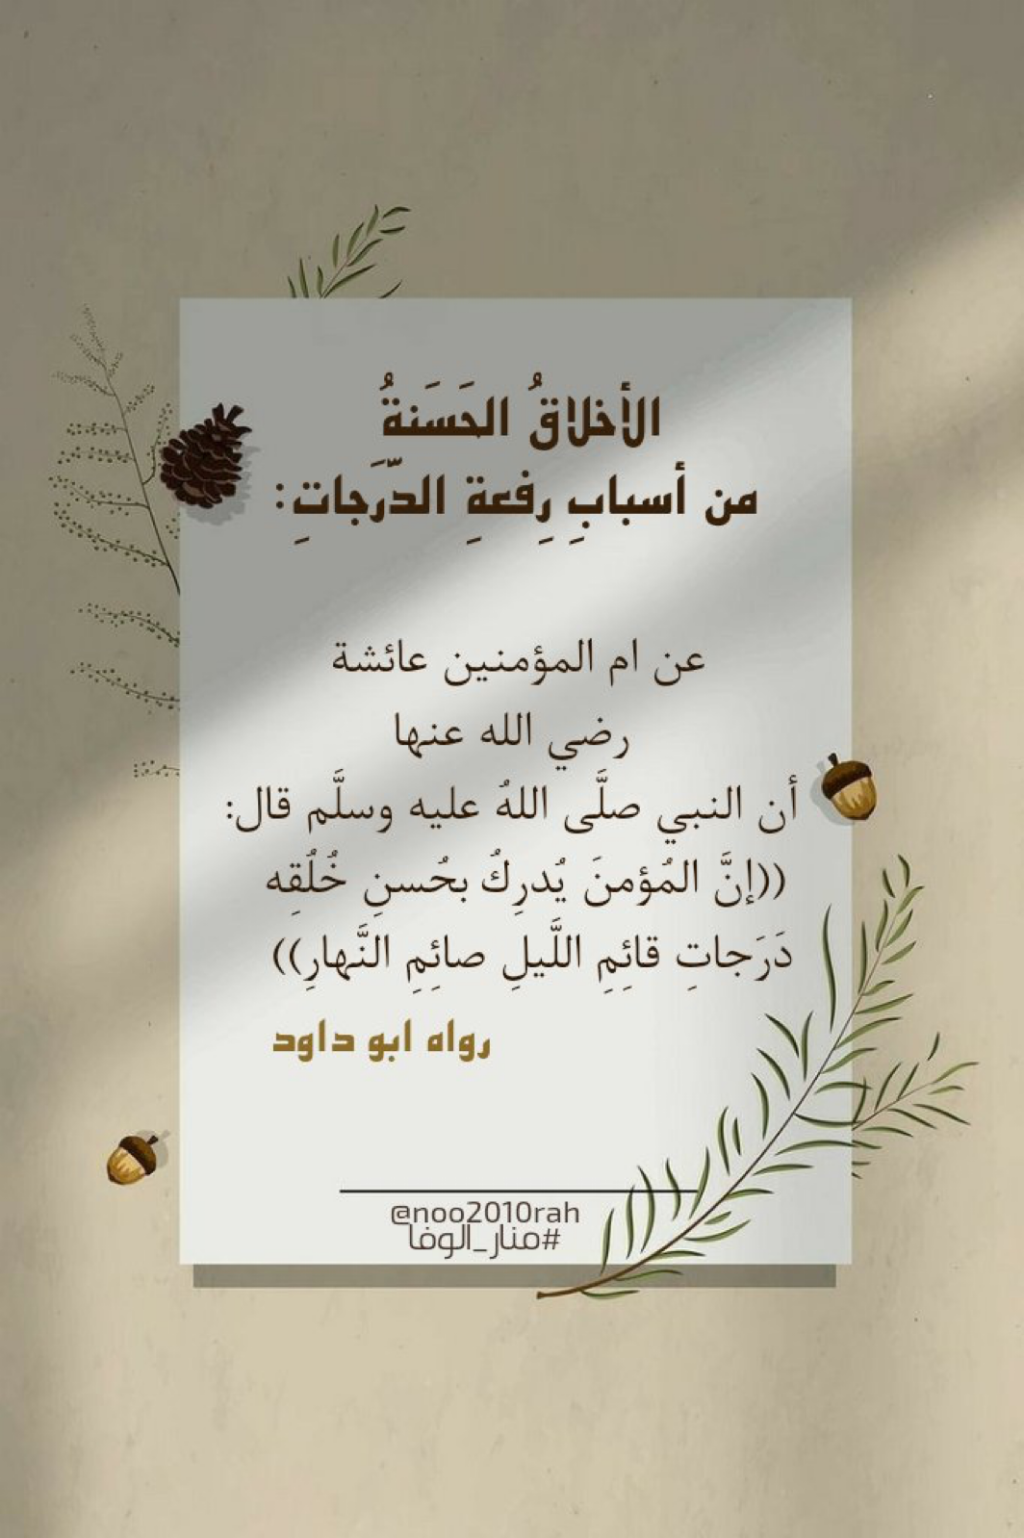 الأخلاقُ الحَسَنةُ
من أسبابِ رِفعةِ الدَّرَجاتِ:
عن ام المؤمنين عائشة
رضي الله عنها
أن النبي صلَّى اللهُ عليه وسلَّم قال:
((إنَّ المُؤمنَ يُدرِكُ بحُسنِ خُلُقِه
دَرَجاتِ قائِمِ اللَّيلِ صائِمِ النَّهارِ))
رواه ابو داود
@noo2010rah
#منار_الوفا